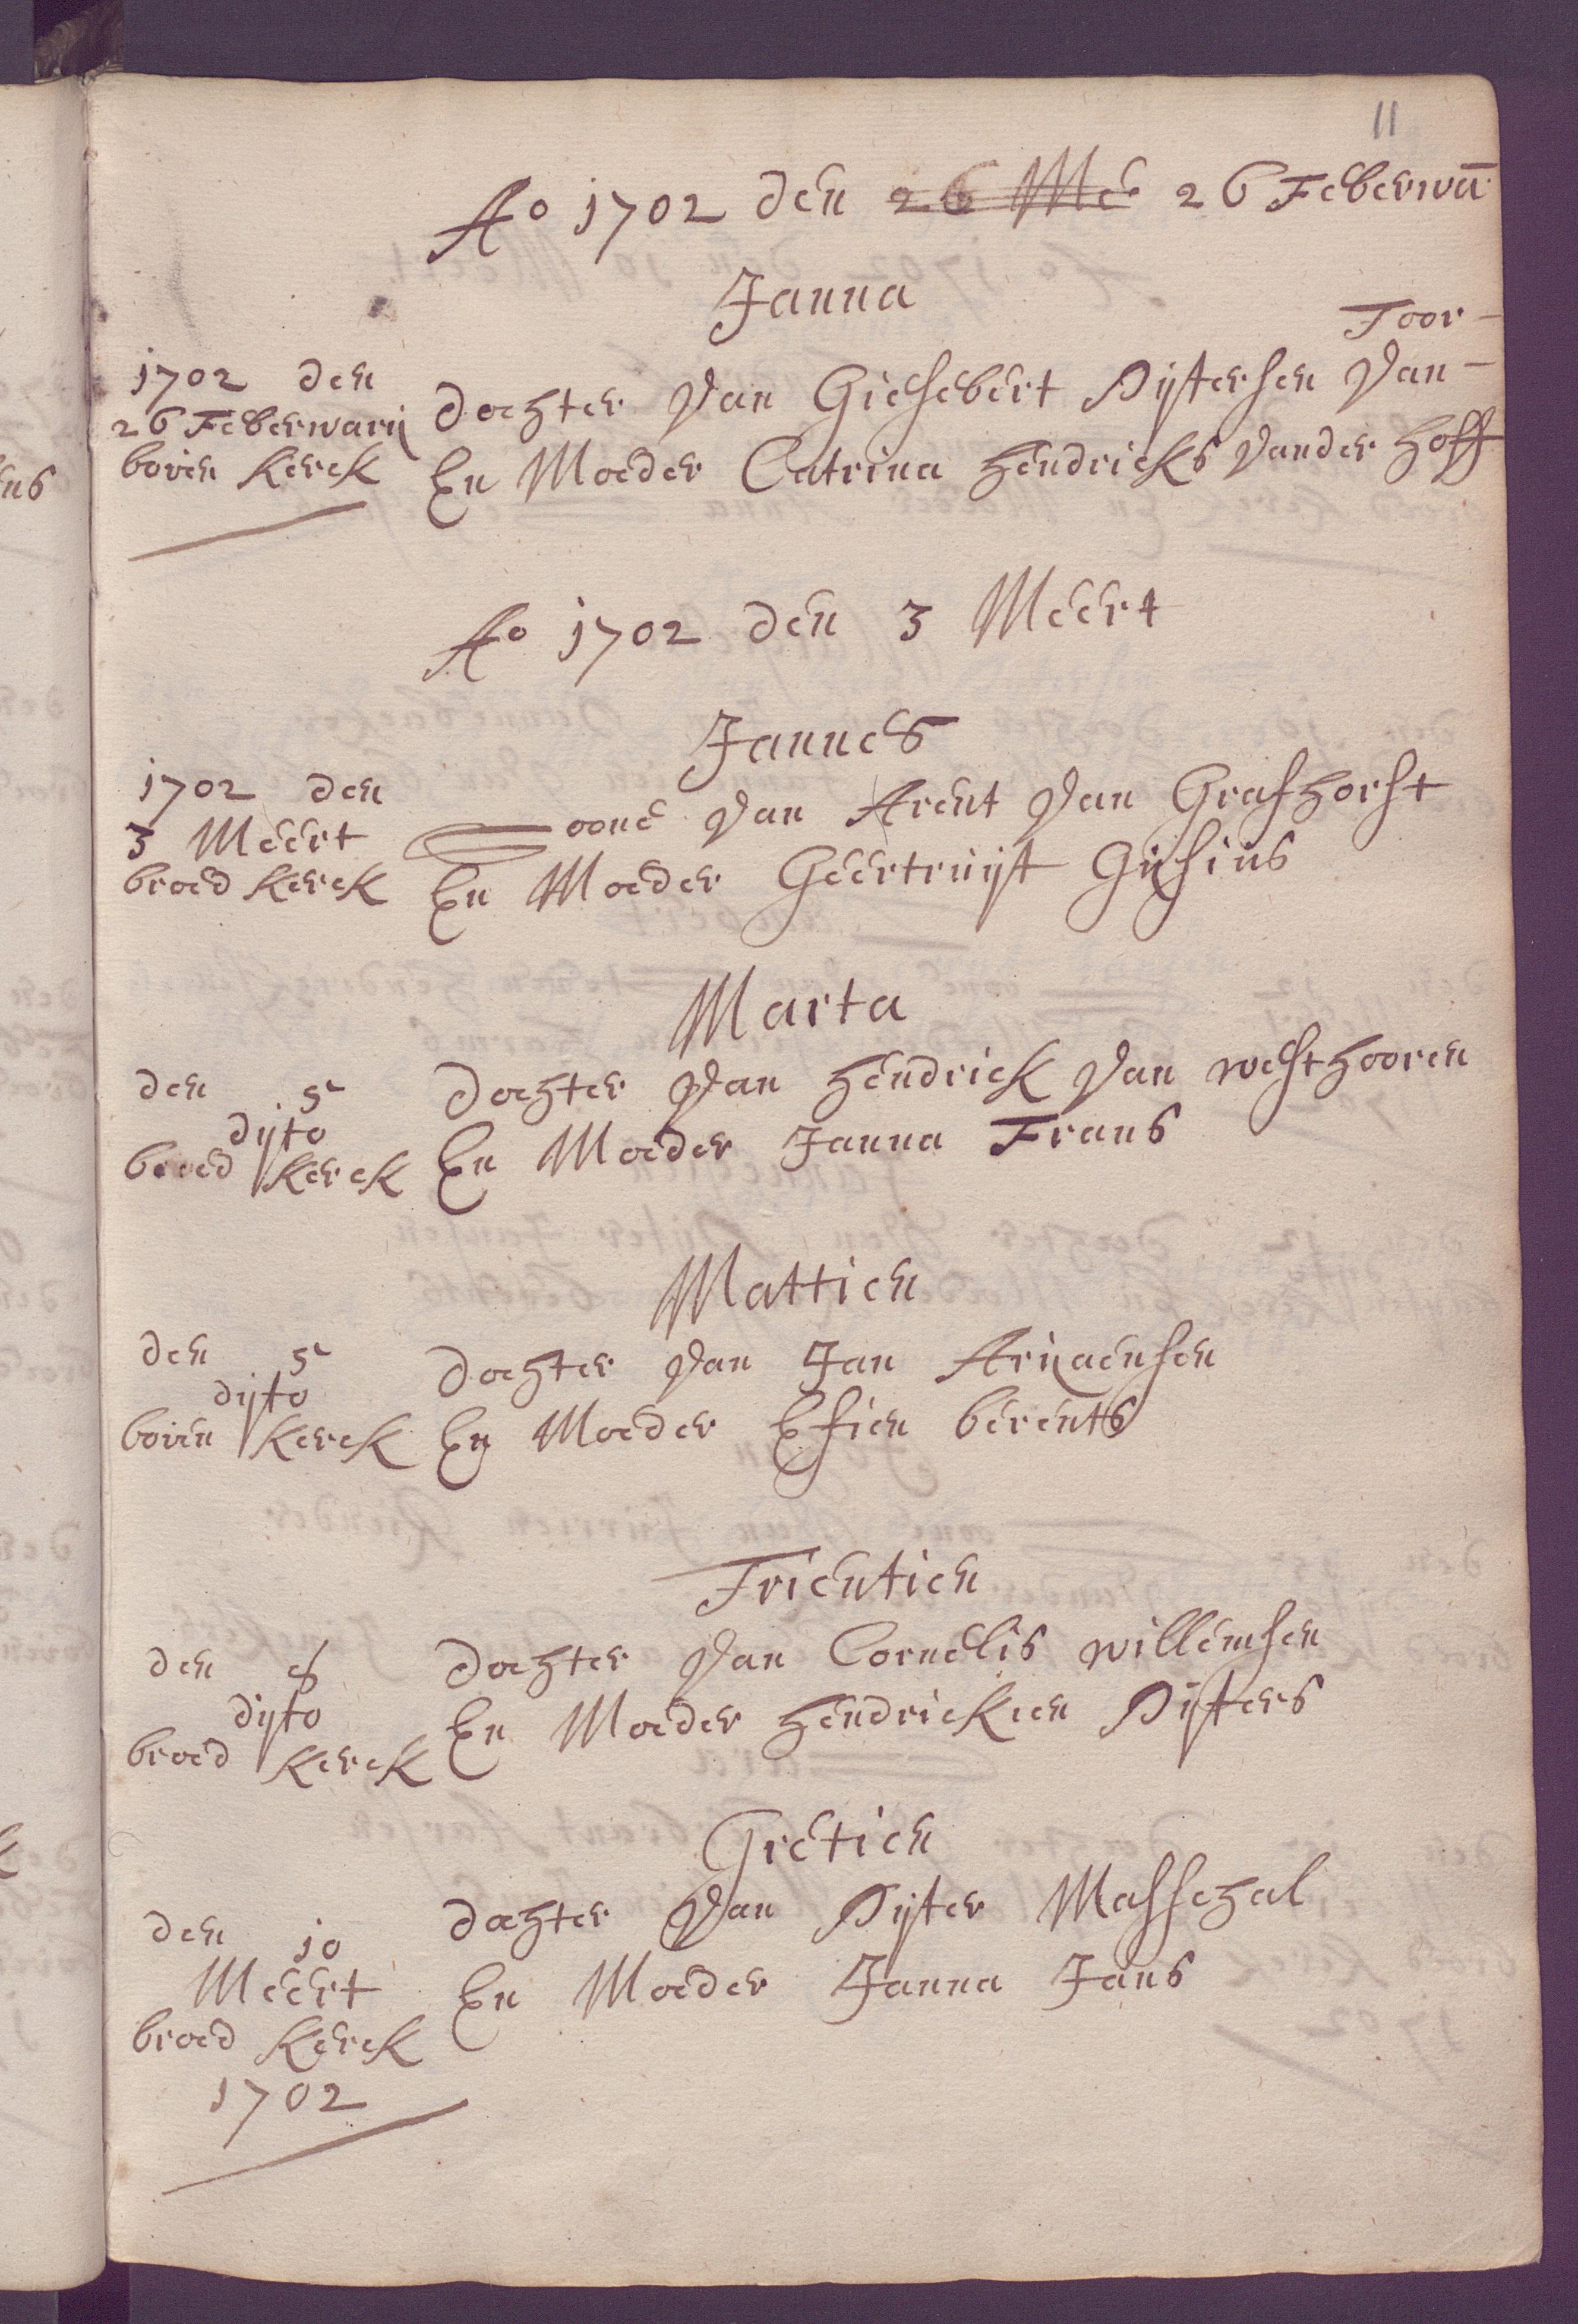 11
Ao 1702 den 26 Me 26 Feberwa
Janna
Toor-
1702 den
26 Feberwarij
boven Kerck
dochter van Giesebert Pijtersen van-
En Moeder Catrina hendricks vander hoff
Ao 1702 den 3 Meert
Jannes
1702 den
3 Meert
broed Kerck
Soone van Arent van Grafhorst
En Moeder Geertruijt Gijsius
Marta
den 5
dijto
broed Kerck
dochter van hendrick van westhooren
En Moeder Janna Frans
Mattien
den 5
dijto
boven Kerck
dochter van Jan Arijaensen
En Moeder Efien berents
Trientien
den
dijto
broed Kerck
dochter van Cornelis willemsen
En Moeder hendrickien Pijters
Gretien
den 10
Meert
broed Kerck
1702
dochter van Pijter Masschal
En Moeder Janna Jans